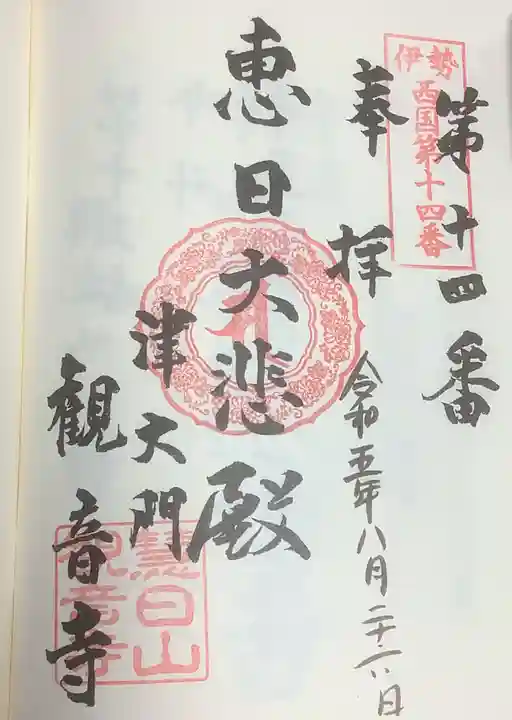 伊勢
西国第十四番
第十四番
奉拝
令和五年八月二十六日
恵日大悲殿
津大門
観音寺
慧日山
観音寺